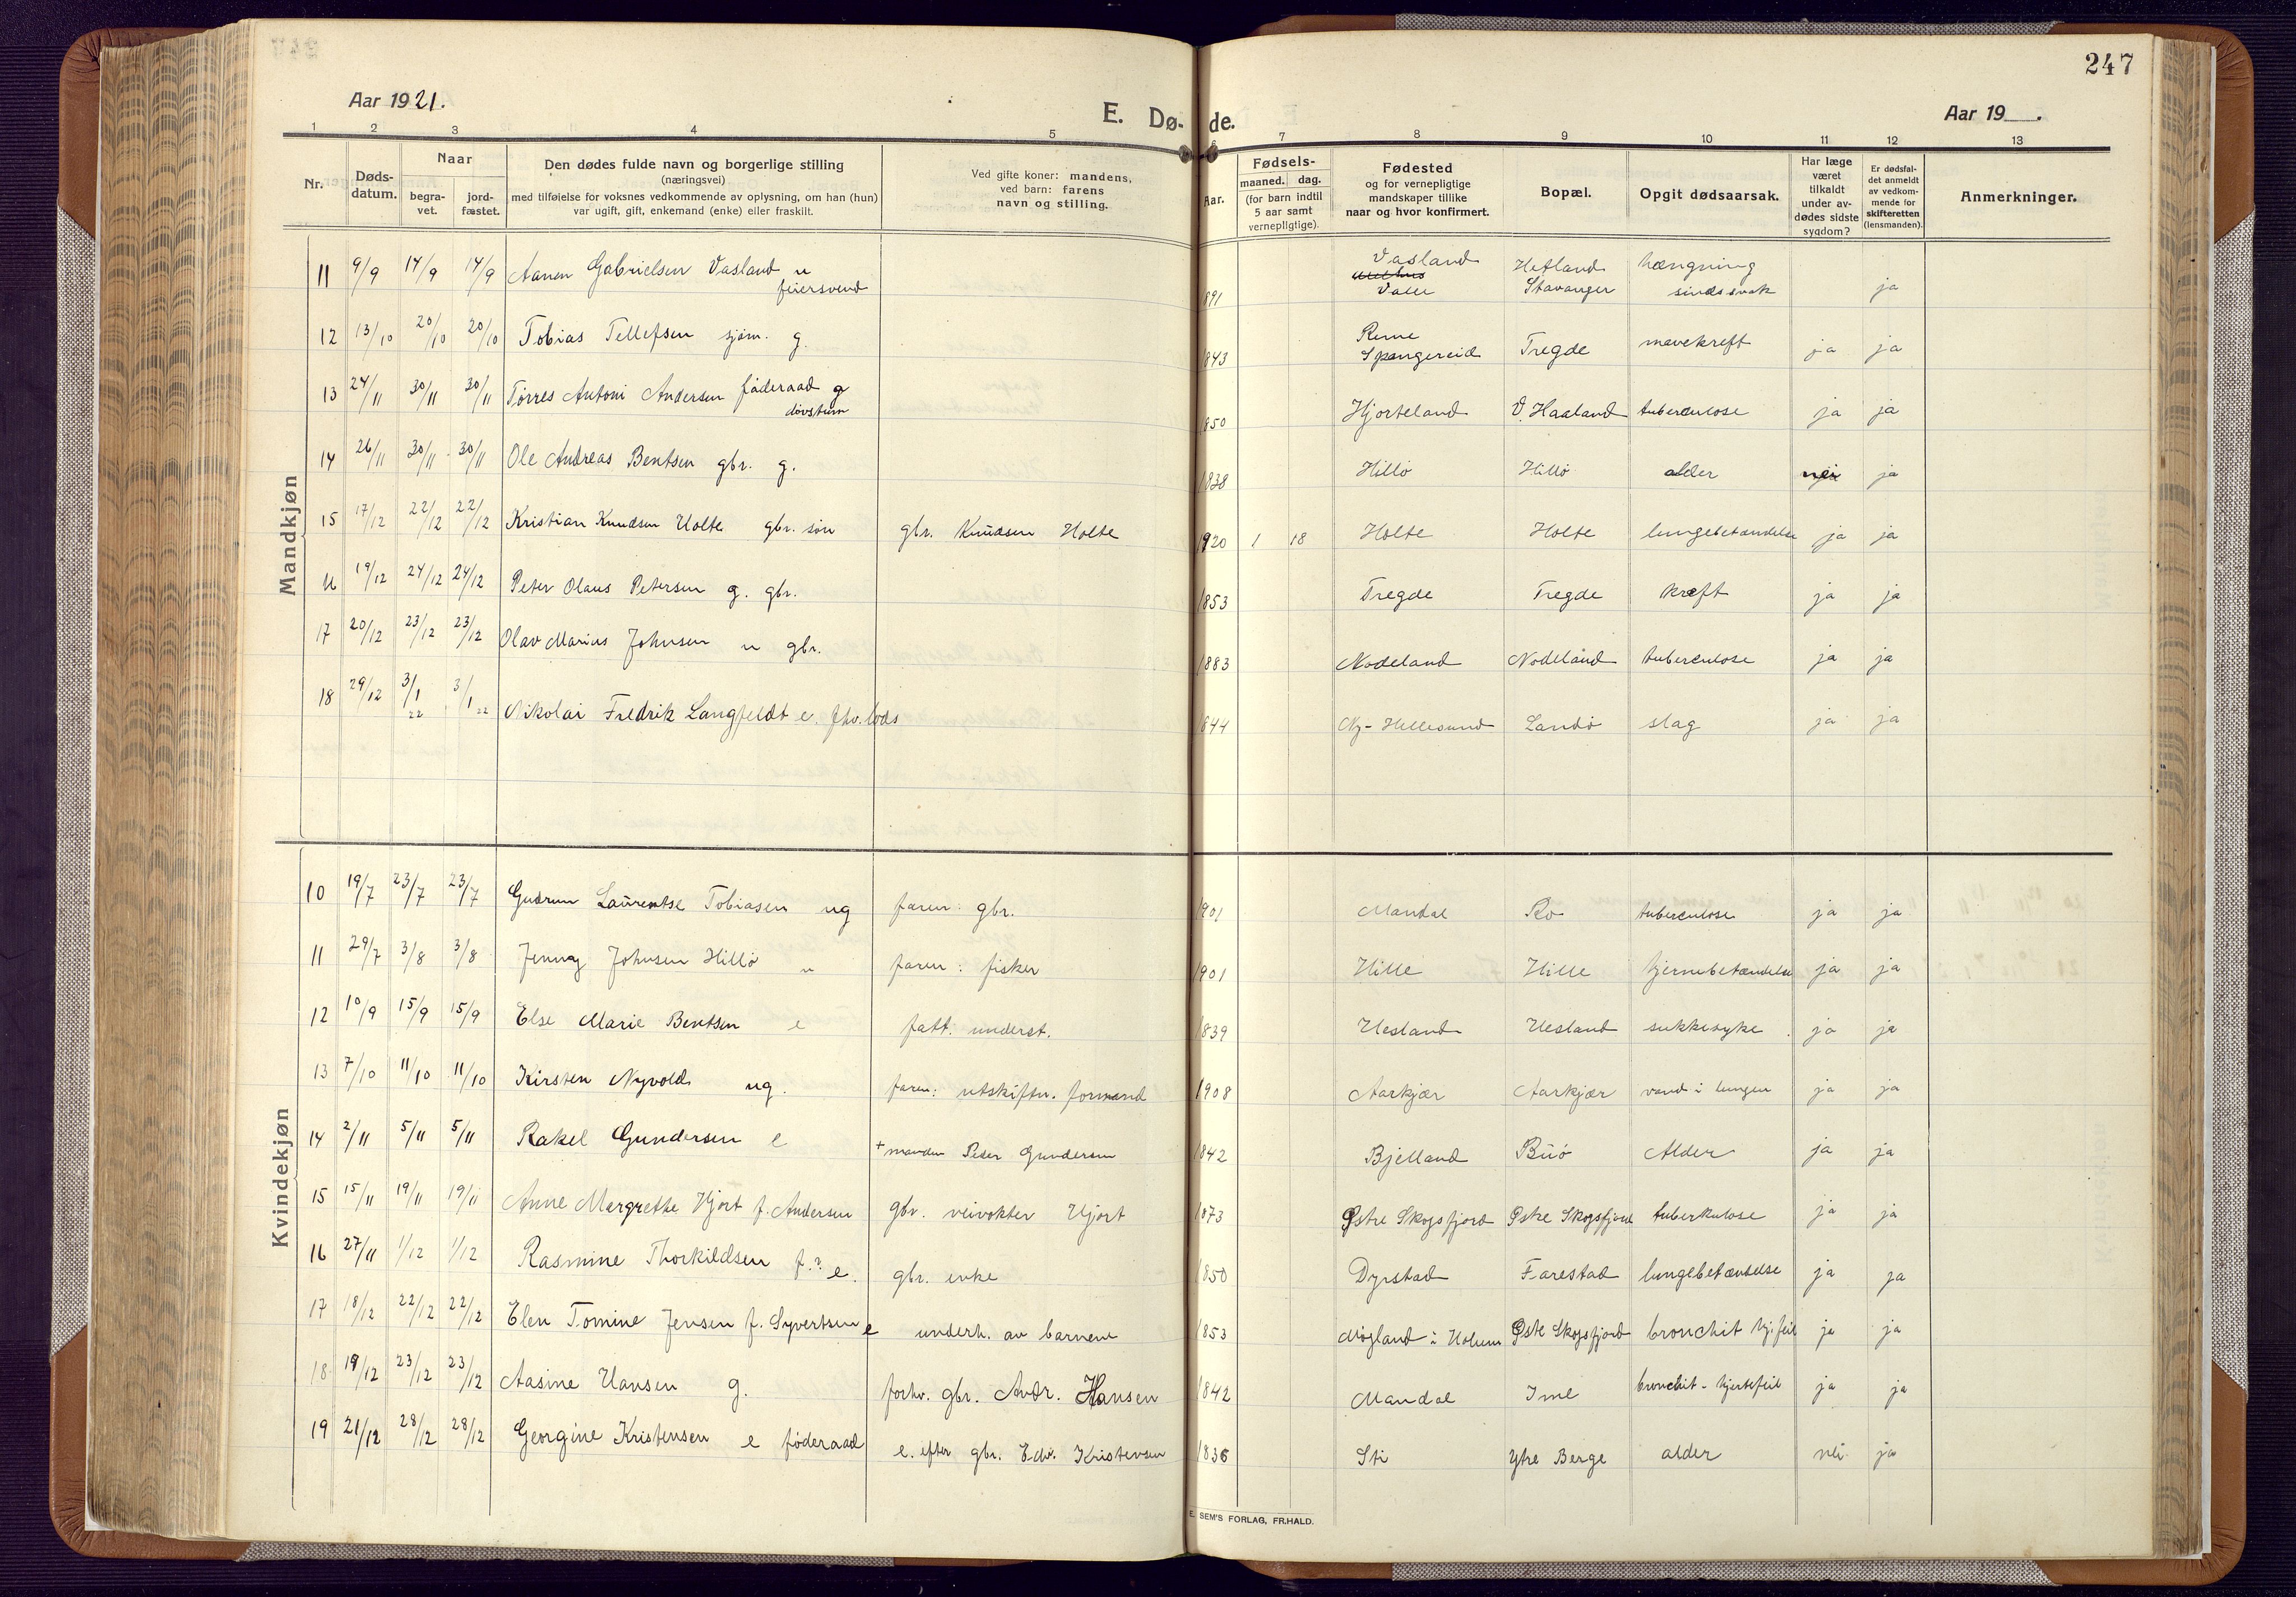 247
Aar 1921.
E. Dø- de.
Aar 19 .
1 2 3 4 5 6 7 8 9 10 11 12 13
Nr.
Døds-
datum.
Naar
begra-
vet.
jord-
fæstet.
Den dødes fulde navn og borgerlige stilling
(næringsvei)
med tilføielse for voksnes vedkommende av oplysning, om han (hun)
var ugift, gift, enkemand (enke) eller fraskilt.
Ved gifte koner: mandens,
ved barn: farens
navn og stilling.
Aar.
Fødsels-
maaned. dag.
(for barn indtil
5 aar samt
vernepligtige).
Fødested
og for vernepligtige
mandskaper tillike
naar og hvor konfirmert.
Bopæl.
Opgit dødsaarsak.
Har læge
været
tilkaldt
under av-
dødes sidste
sygdom?
Er dødsfal-
det anmeldt
av vedkom-
mende for
skifteretten
(lensmanden).
Anmerkninger.
Mandkjøn
11 9/9 14/9 14/9 Aanen Gabrielsen Vasland u feiersvend 891 Vasland Valle Hetland Stavanger hængning sindssvak ja
12 13/10 20/10 20/10 Tobias Tellefsen sjøm. g. 843 Reme Spangereid Tregde mavekreft ja ja
13 24/11 30/11 30/11 Tørres Antoni Andersen føderaad g døvstum 1850 Hjorteland V. Haaland tuberculose ja ja
14 26/11 30/11 30/11 Ole Andreas Bentsen gbr. g. 1838 Hillø Hillø alder nei ja
15 17/12 22/12 22/12 Kristian Knudsen Holte gbr. søn gbr. Knudsen Holte 1920 1 18 Holte Holte lungebetændelse ja ja
16 19/12 24/12 24/12 Peter Olaus Petersen g. gbr. 1853 Tregde Tregde kræft ja ja
17 20/12 23/12 23/12 Olav Marius Johnsen u gbr. 1883 Nodeland Nodeland tuberculose ja ja
18 29/12 3/1 22 3/1 22 Nikolai Fredrik Langfeldt e. fhv. lods 1844 Ny-Hellesund Landø slag ja ja
Kvindekjøn
10 19/7 23/7 23/7 Gudrun Laurentse Tobiasen ug faren: gbr. 1901 Mandal Ro tuberculose ja ja
11 29/7 3/8 3/8 Jenny Johnsen Hillø u faren: fisker 1901 Hille Hille hjernebetændelse ja ja
12 10/9 15/9 15/9 Else Marie Bentsen e fatt. underst. 1839 Uesland Uesland sukkesyke ja ja
13 7/10 11/10 11/10 Kirsten Nyvold ug. faren: utskiftn. formand 1908 Aarkjær Aarkjær vand i lungen ja ja
14 2/11 5/11 5/11 Rakel Gundersen e + manden Peder Gundersen 1842 Bjelland Buø Alder ja ja
15 15/11 19/11 19/11 Anne Margrethe Hjort f. Andersen gbr. veivokter Hjort 1873 Østre Skogsfjord Østre Skogsfjord tuberkulose ja ja
16 27/11 1/12 1/12 Rasmine Thorkildsen f.? e. gbr. enke 1850 Dyrstad Farestad lungebetændelse ja ja
17 18/12 22/12 22/12 Elen Tomine Jensen f. Syvertsen e underh. av barnene 1853 Møgland i Holum Østre Skogsfjord bronchit hj.feil ja ja
18 19/12 23/12 23/12 Aasine Hansen g. forhv. gbr. Andr. Hansen 1842 Mandal Ime bronchit - hjertefeil ja ja
19 21/12 28/12 28/12 Georgine Kristensen e føderaad e. efter gbr. Edv. Kristensen 1836 Sti Ytre Berge alder nei ja
E. SEM'S FORLAG, FR.HALD.